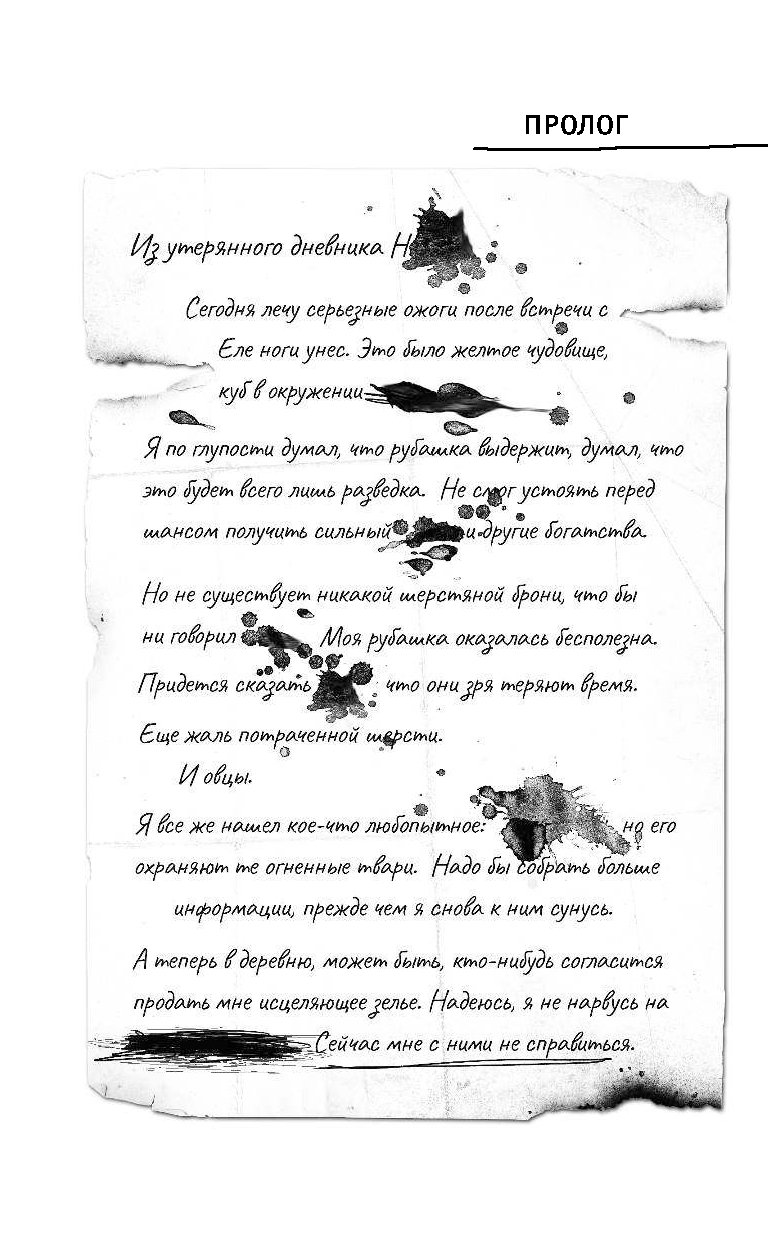 ПРОЛОГ
Из утерянного дневника Н
Сегодня лечу серьезные ожоги после встречи с
Еле ноги унес. Это было желтое чудовище,
куб в окружении
Я по глупости думал, что рубашка выдержит, думал, что
это будет всего лишь разведка. Не смог устоять перед
шансом получить сильный и другие богатства.
Но не существует никакой шерстяной брони, что бы
ни говорил Моя рубашка оказалась бесполезна.
Придется сказать что они зря теряют время.
Еще жаль потраченной шерсти.
И овцы.
Я все же нашел кое-что любопытное: но его
охраняют те огненные твари. Надо бы собрать больше
информации, прежде чем я снова к ним сунусь.
А теперь в деревню, может быть, кто-нибудь согласится
продать мне исцеляющее зелье. Надеюсь, я не нарвусь на
Сейчас мне с ними не справиться.